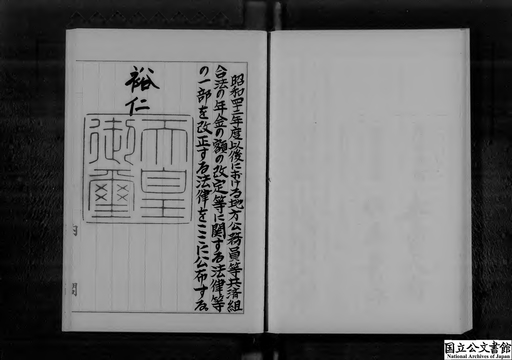 昭和四十二年度以後における地方公務員等共済組
合法の年金の額の改定等に関する法律等
の一部を改正する法律をここに公布する。
裕仁
天皇
御璽
国立公文書館
National Archives of Japan